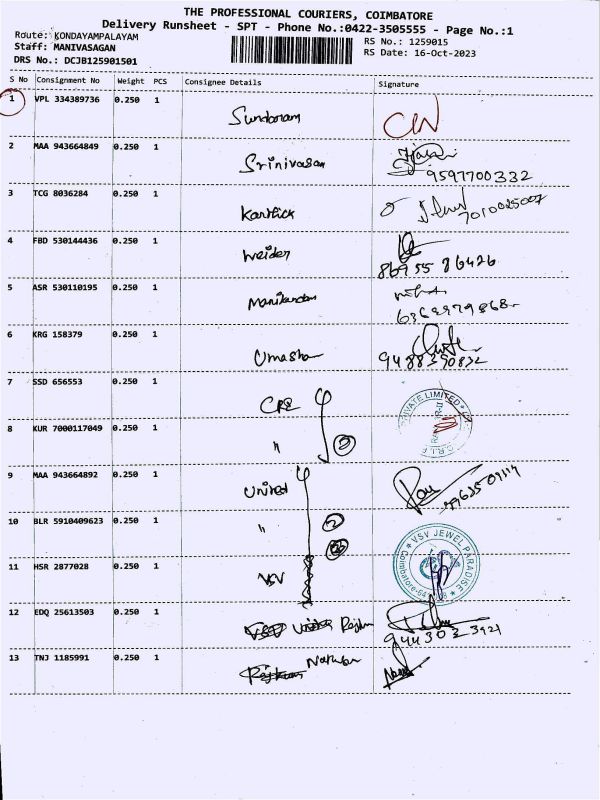 THE PROFESSIONAL COURIERS, COIMBATORE
Delivery Runsheet - SPT - Phone No.:0422-3505555 - Page No.:1
Route: KONDAYAMPALAYAM
Staff: MANIVASAGAN
DRS No.: DCJB125901501
RS No.: 1259015
RS Date: 16-Oct-2023
S No Consignment No Weight PCS Consignee Details Signature
1 VPL 334389736 0.250 1 Sundaram
2 MAA 943664849 0.250 1 Srinivasan 9597700332
3 TCG 8036284 0.250 1 Karthick
4 FBD 530144436 0.250 1 Weider 86955 86426
5 ASR 530110195 0.250 1 Manikandan
6 KRG 158379 0.250 1 9488390832
7 SSD 656553 0.250 1 PRIVATE LIMITED
8 KUR 7000117049 0.250 1 "
9 MAA 943664892 0.250 1 United
10 BLR 5910409623 0.250 1 " 2
11 HSR 2877028 0.250 1 VSV VSV JEWEL PARADISE
12 EDQ 25613503 0.250 1 944303 3921
13 TNJ 1185991 0.250 1